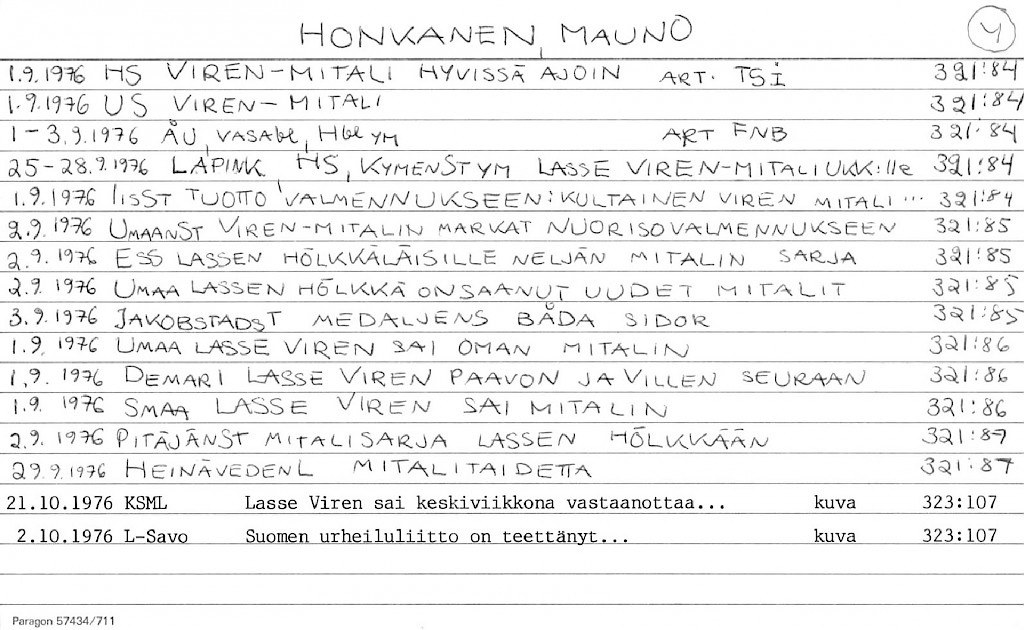 HONKANEN, MAUNO 4
1.9.1976 HS VIREN-MITALI HYVISSÄ AJOIN ART. TSi 321:84
1.9.1976 US VIREN-MITALI 321:84
1-3.9.1976 ÅU, VASABl, Hbl YM ART FNB 321:84
25-28.9.1976 LAPINK, HS, KYMENST YM LASSE VIREN-MITALI UKK:lle 321:84
1.9.1976 IISST TUOTTO VALMENNUKSEEN: KULTAINEN VIREN MITALI ... 321:84
2.9.1976 UMAANST VIREN-MITALIN MARKAT NUORISOVALMENNUKSEEN 321:85
2.9.1976 ESS LASSEN HÖLKKÄLÄISILLE NELJÄN MITALIN SARJA 321:85
2.9.1976 UMAA LASSEN HÖLKKÄ ON SAANUT UUDET MITALIT 321:85
3.9.1976 JAKOBSTADST MEDALJENS BÅDA SIDOR 321:85
1.9.1976 UMAA LASSE VIREN SAI OMAN MITALIN 321:86
1.9.1976 DEMARI LASSE VIREN PAAVON JA VILLEN SEURAAN 321:86
1.9.1976 SMAA LASSE VIREN SAI MITALIN 321:86
2.9.1976 PITÄJÄNST MITALISARJA LASSEN HÖLKKÄÄN 321:87
29.9.1976 HEINÄVEDENL MITALITAIDETTA 321:87
21.10.1976 KSML Lasse Viren sai keskiviikkona vastaanottaa... kuva 323:107
2.10.1976 L-Savo Suomen urheiluliitto on teettänyt... kuva 323:107
Paragon 57434/711